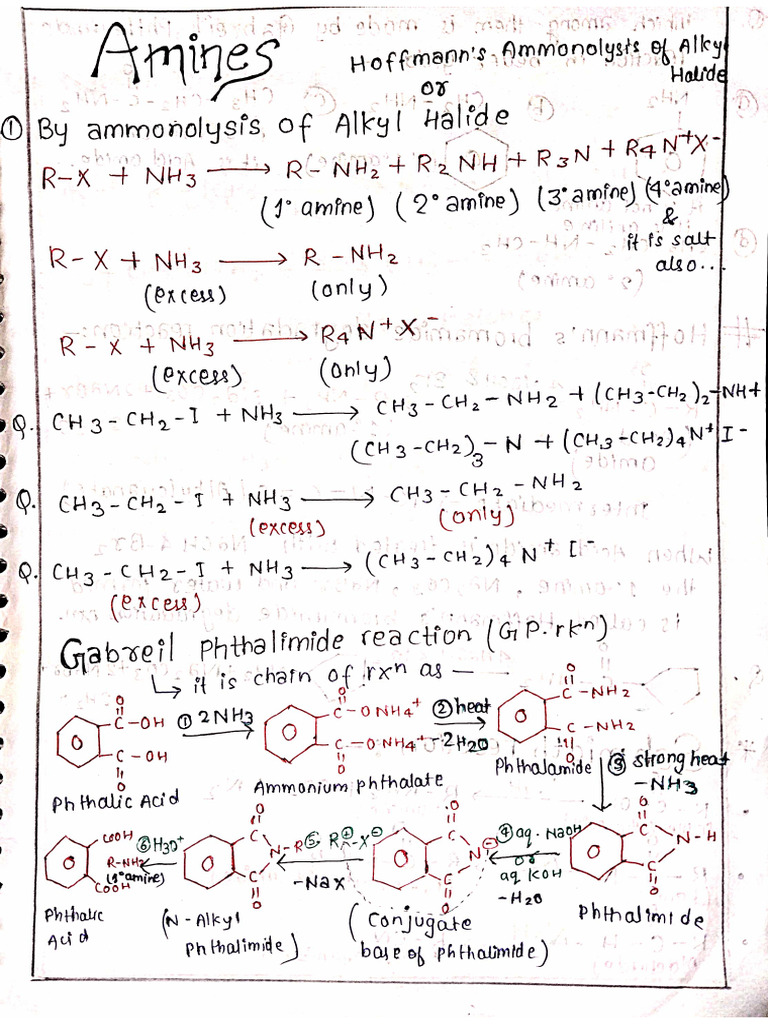 Amines
Hoffmann's Ammonolysis of Alkyl Halide
or
① By ammonolysis of Alkyl Halide
R-X + NH3 ⟶ R-NH2 + R2NH + R3N + R4N+X-
(1° amine) (2° amine) (3° amine) (4° amine)
& it is salt also...
R-X + NH3 ⟶ R-NH2
(excess) (only)
R-X + NH3 ⟶ R4N+X-
(excess) (only)
Q. CH3-CH2-I + NH3 ⟶ CH3-CH2-NH2 + (CH3-CH2)2-NH+
(CH3-CH2)3-N + (CH3-CH2)4N+I-
Q. CH3-CH2-I + NH3 ⟶ CH3-CH2-NH2
(excess) (only)
Q. CH3-CH2-I + NH3 ⟶ (CH3-CH2)4N+I-
(excess)
Gabreil phthalimide reaction (GP.rkn)
↳ it is chain of rxn as —
O C-OH C-OH O ① 2NH3 O C-ONH4+ C-O-NH4+ O ② heat -2H2O O C-NH2 C-NH2 O
Phthalic Acid Ammonium phthalate Phthalamide ③ strong heat
-NH3
COOH R-NH2 (1° amine) COOH ⑥ H3O+ O C N-R C O ⑤ R+-X- -Nax O C N- C O ④ aq. NaOH or aq KOH -H2O O C N-H C O
Phthalic Acid (N-Alkyl phthalimide) (Conjugate base of phthalimide) Phthalimide